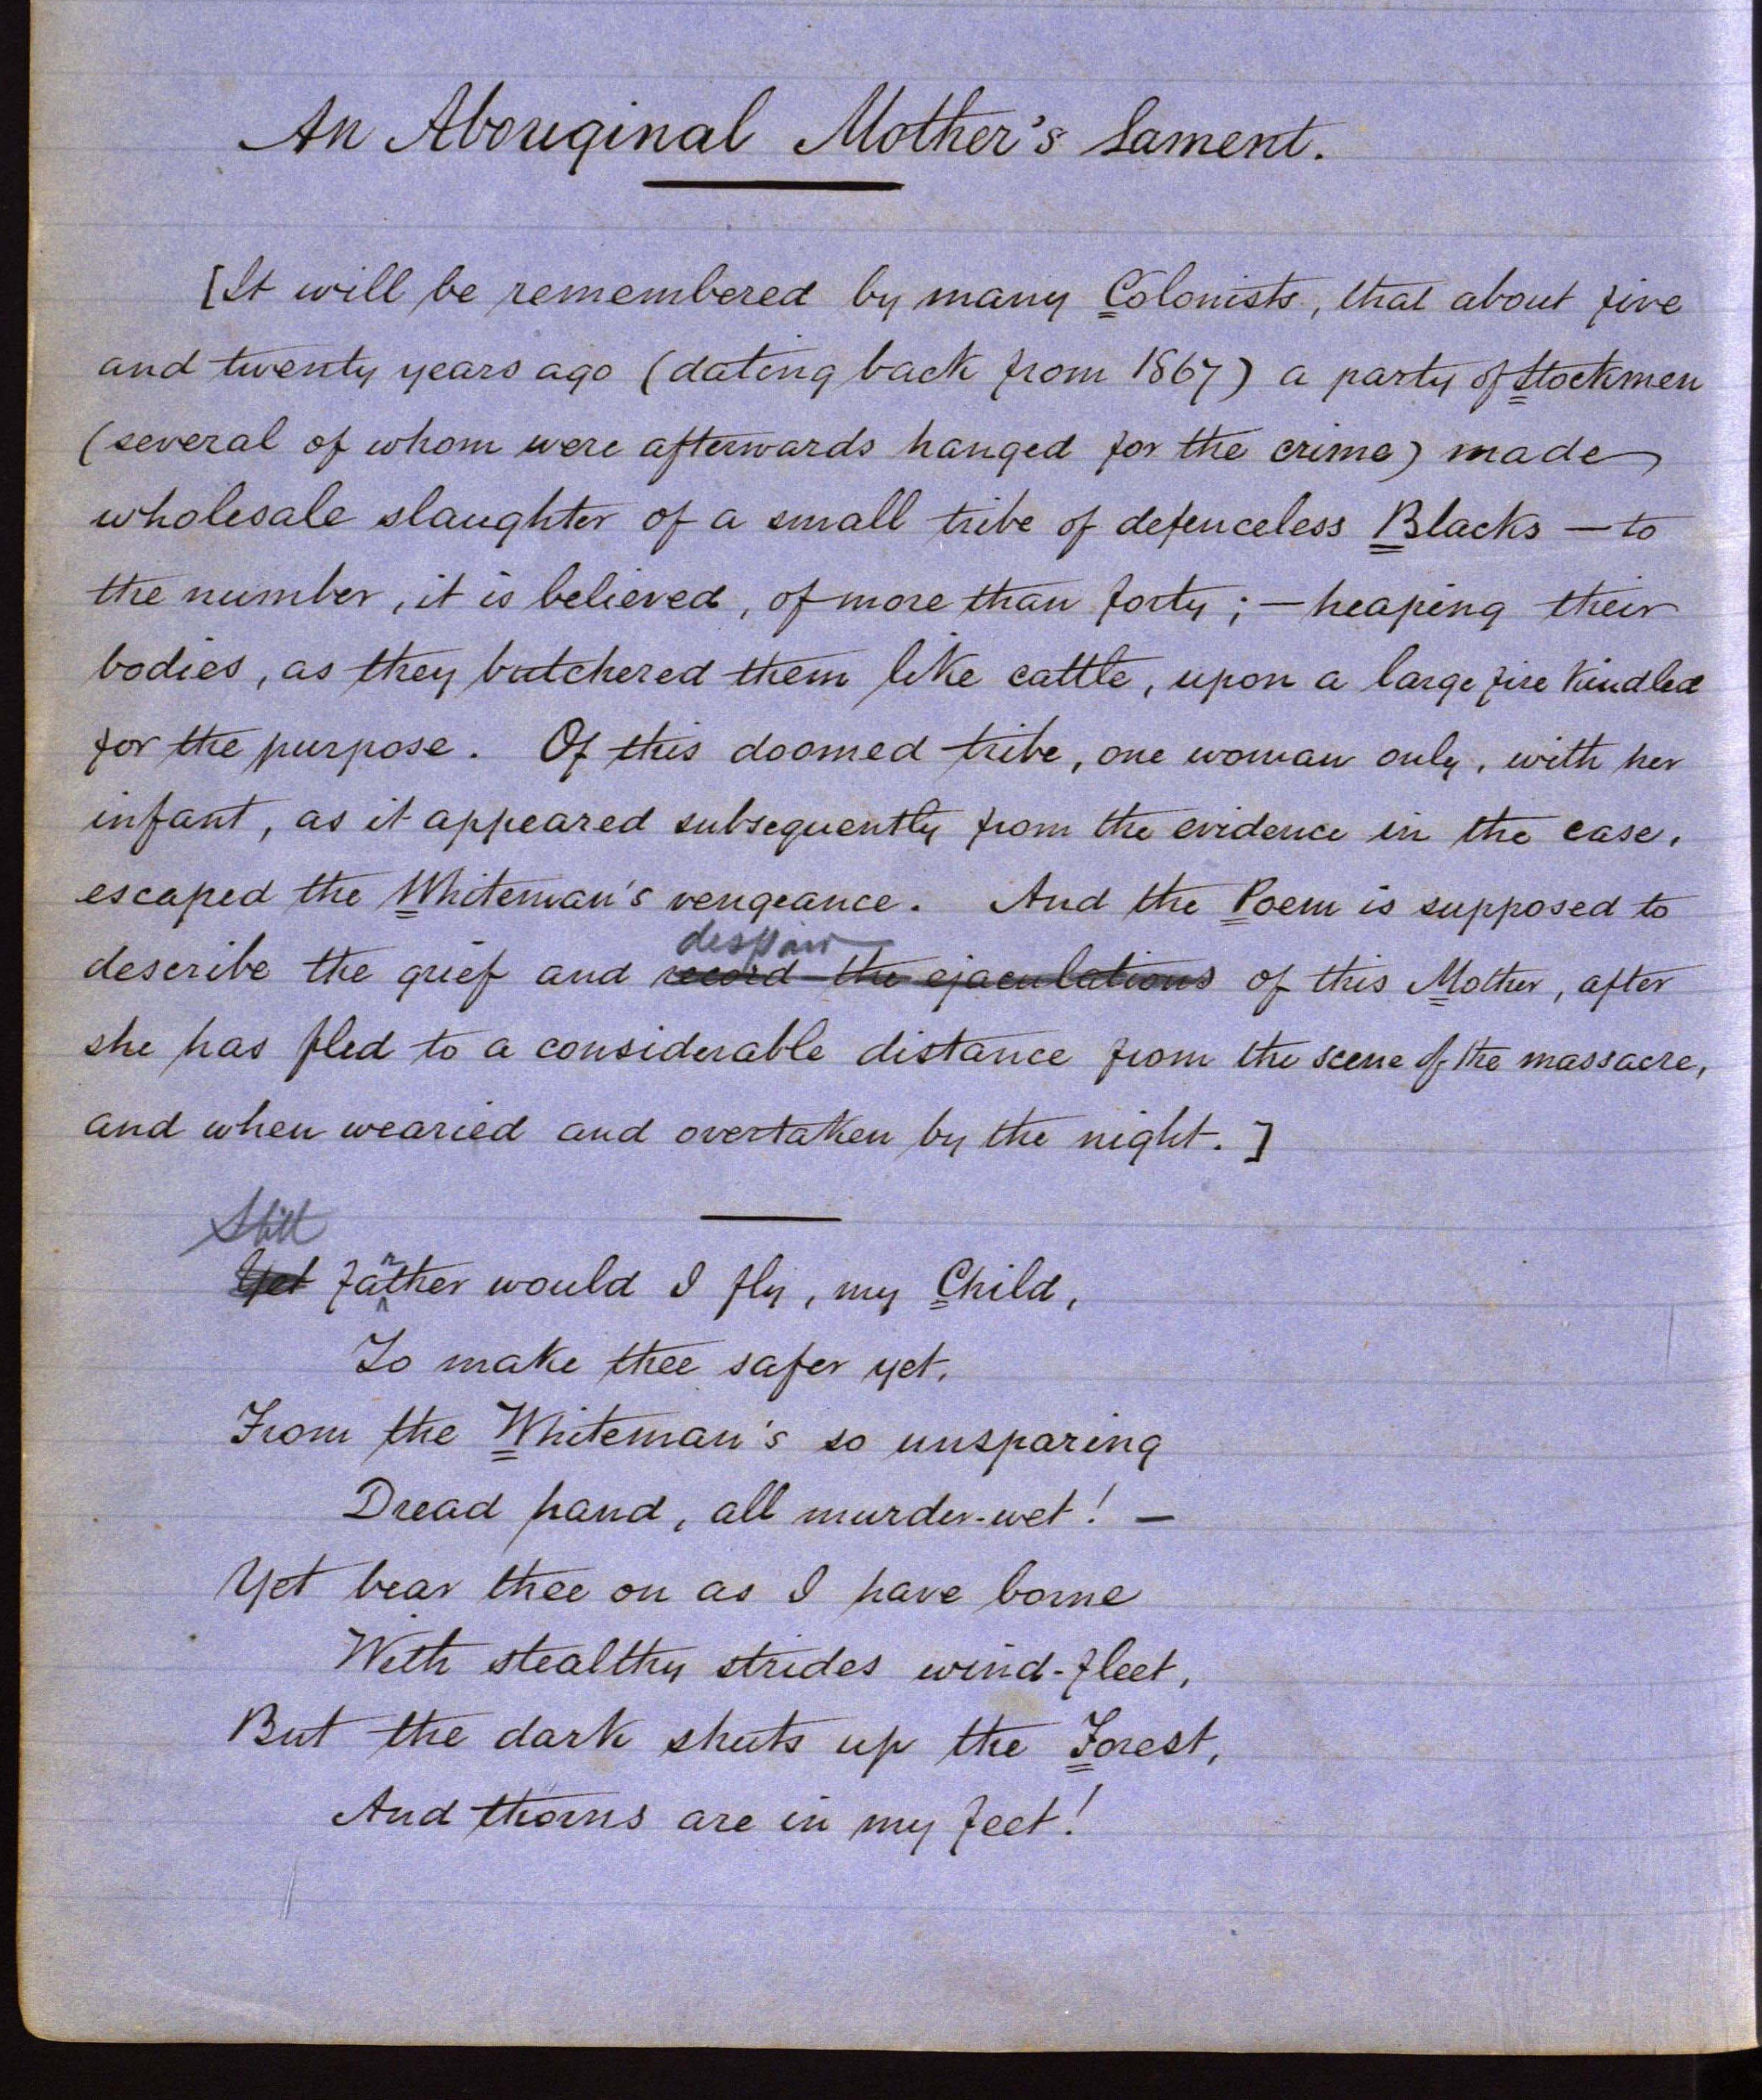 An Aboriginal Mother's Lament.
[It will be remembered by many Colonists, that about five
and twenty years ago (dating back from 1867) a party of Stockmen
(several of whom were afterwards hanged for the crime) made
wholesale slaughter of a small tribe of defenceless Blacks — to
the number, it is believed, of more than forty; — heaping their
bodies, as they butchered them like cattle, upon a large fire kindled
for the purpose. Of this doomed tribe, one woman only, with her
infant, as it appeared subsequently from the evidence in the case,
escaped the Whiteman's vengeance. And the Poem is supposed to
despair
describe the grief and record the ejaculations of this Mother, after
she has fled to a considerable distance from the scene of the massacre,
and when wearied and overtaken by the night.]
Still
Yet farther would I fly, my Child,
To make thee safer yet,
From the Whiteman's so unsparing
Dread hand, all murder-wet! —
Yet bear thee on as I have borne
With stealthy strides wind-fleet,
But the dark shuts up the Forest,
And thorns are in my feet!